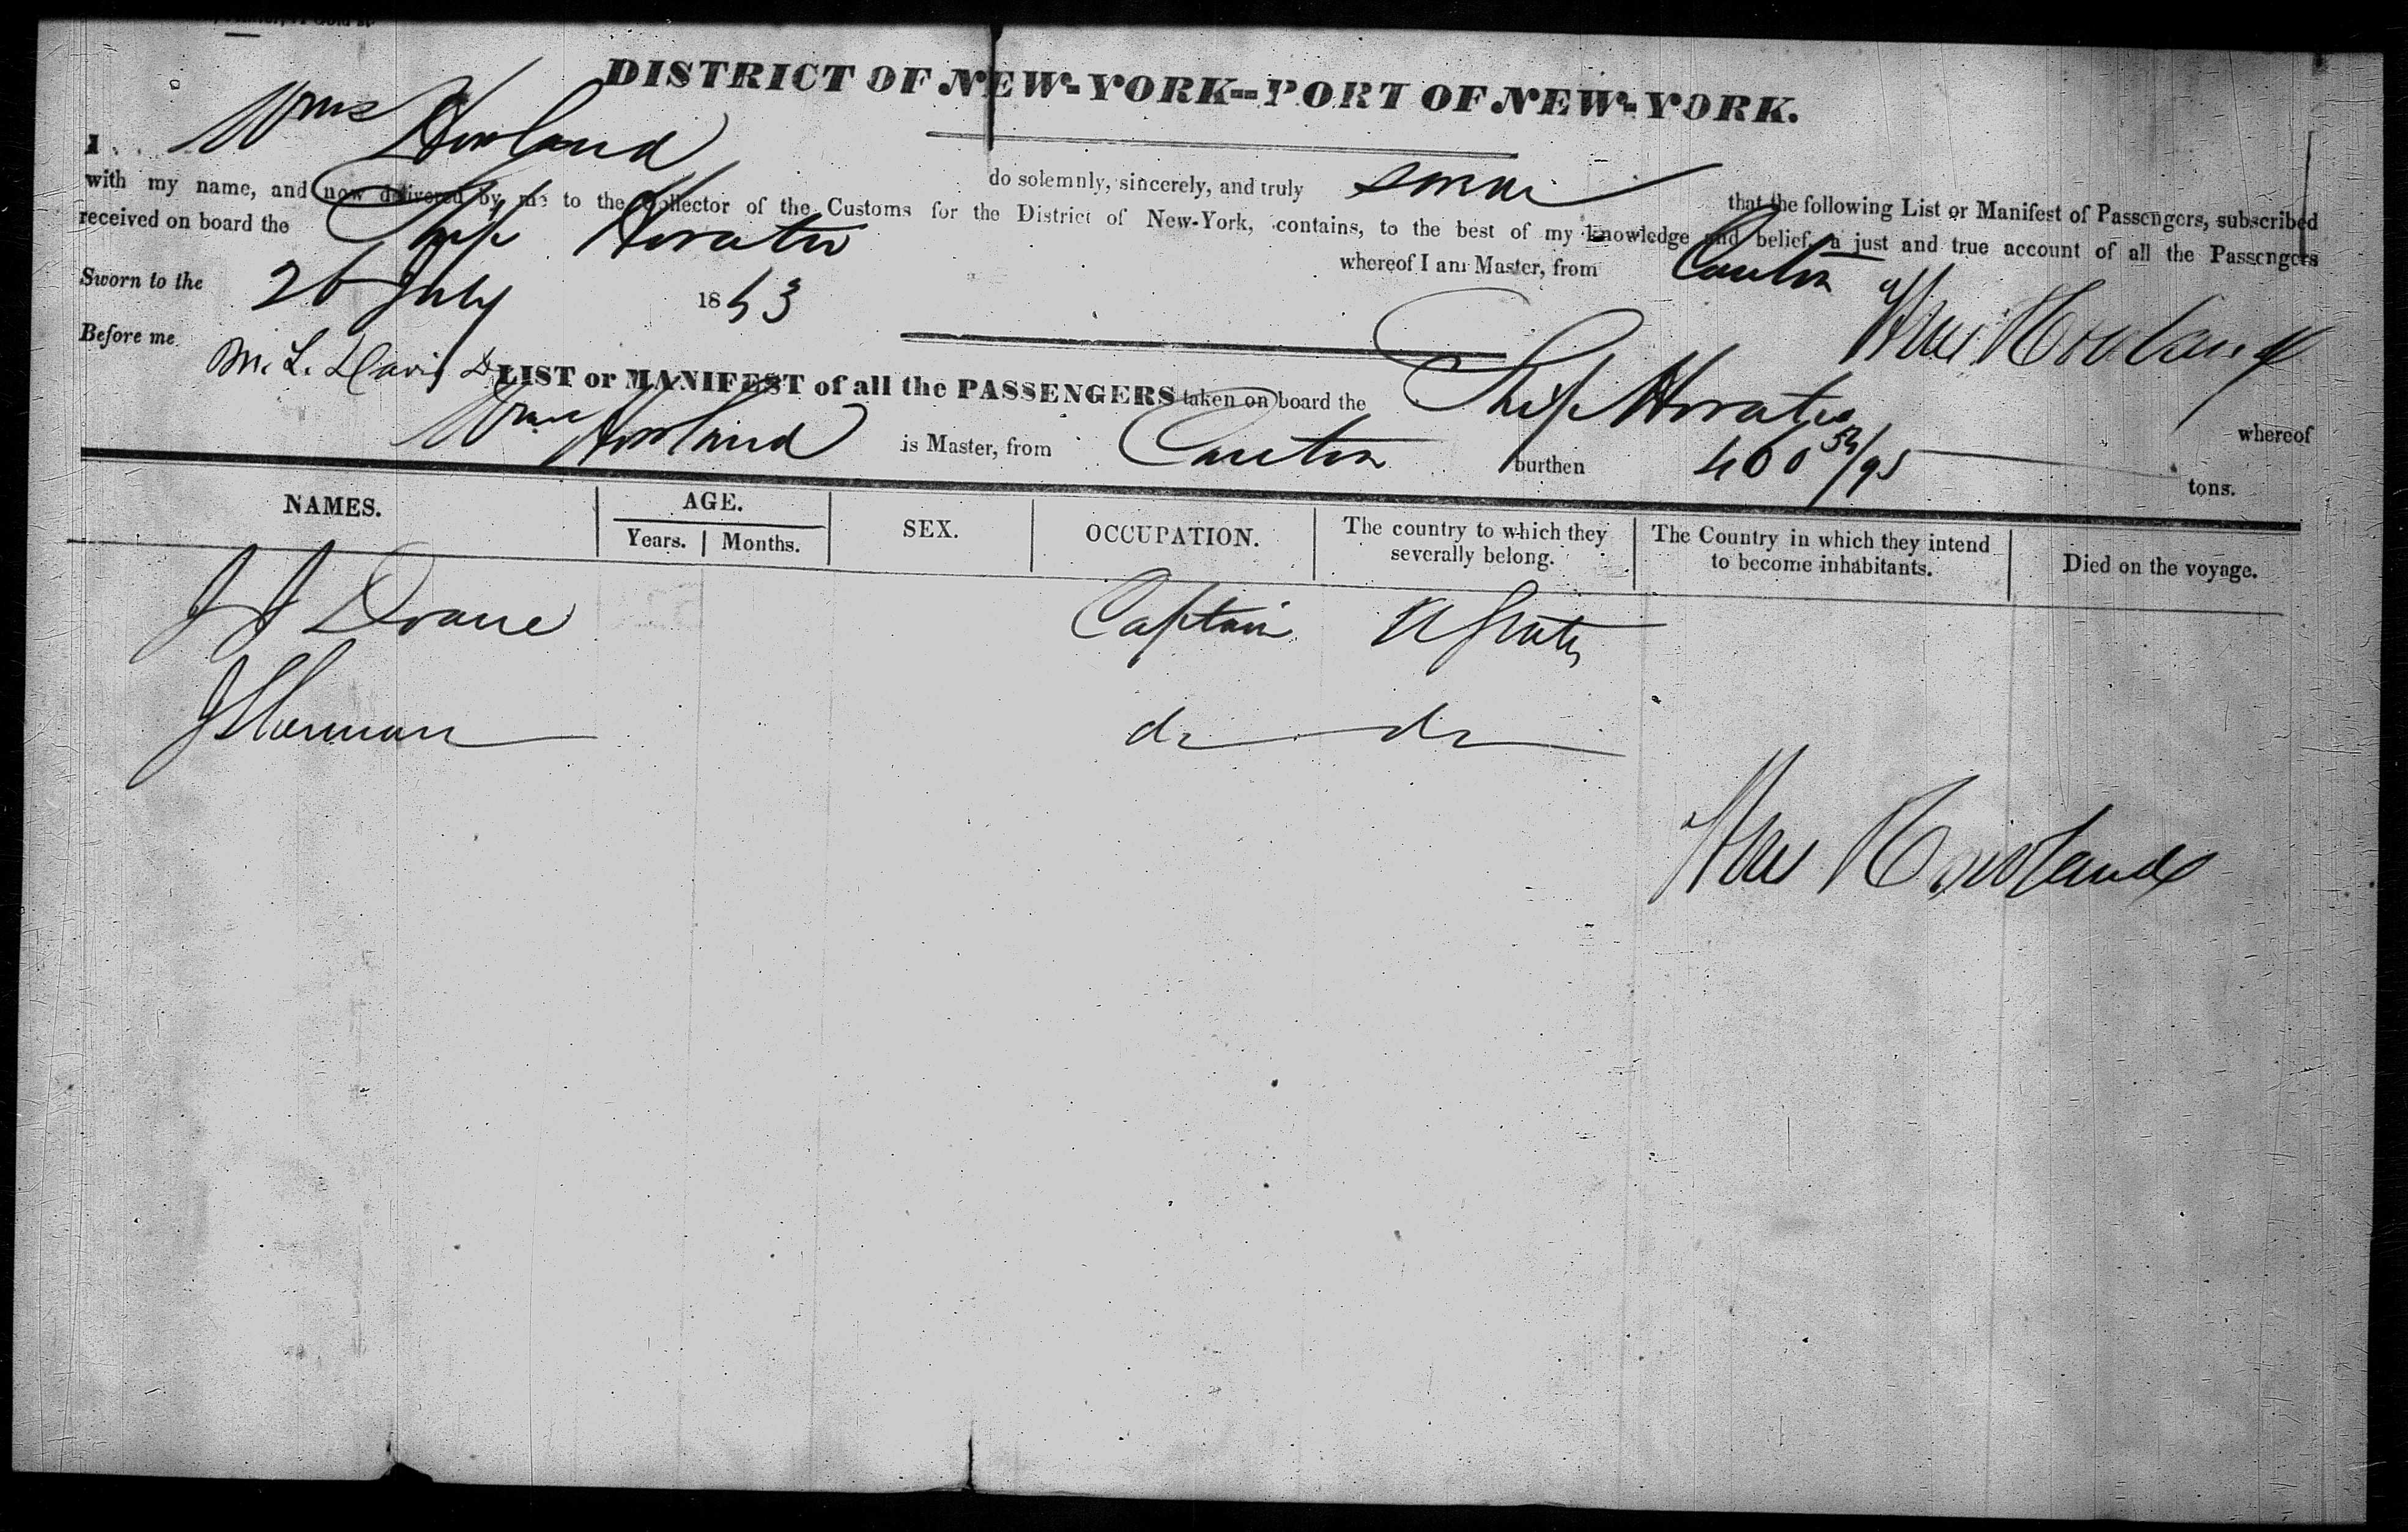 DISTRICT OF NEW-YORK--PORT OF NEW-YORK.
I Wms Howland do solemnly, sincerely, and truly swear that the following List or Manifest of Passengers, subscribed
with my name, and now delivered by me to the Collector of the Customs for the District of New-York, contains, to the best of my knowledge and belief, a just and true account of all the Passengers
received on board the Ship Horatio whereof I am Master, from Canton
Sworn to the 26 July 1853 Wm Howland
Before me M. L. Davis
LIST or MANIFEST of all the PASSENGERS taken on board the Ship Horatio whereof
Wm Howland is Master, from Canton burthen 460 /95 tons.
NAMES. AGE. SEX. OCCUPATION. The country to which they severally belong. The Country in which they intend to become inhabitants. Died on the voyage.
Years. Months.
J J Doane Captain U States
J Sherman do do
Wm Howland